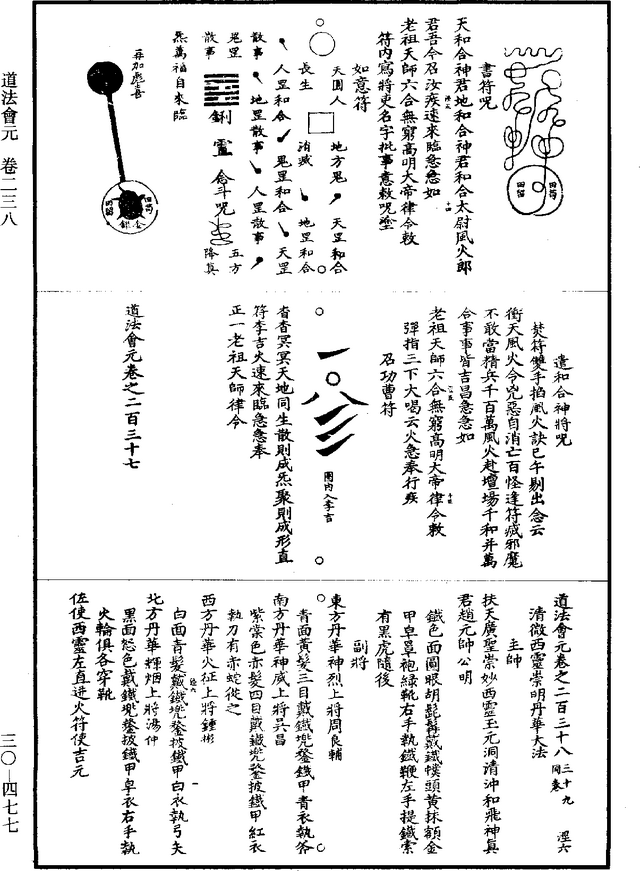 道法會元　卷二三八
三〇—四七七
書符呪
天和合神君地和合神君和合太尉風火郎
君吾今召汝疾速來臨急急如
老祖天師六合無窮高明大帝律令敕
符內寫將吏名字批事意敕呪塗
如意符
天圓人　地方鬼　天罡和合
長生　消滅　地罡和合
人罡和合　鬼罡和合　天罡
散事　地罡散事　人罡散事
鬼罡　鋓靈　念斗呪　五方
散事　降真
炁萬福自來臨
再加彪喜
金銀
遣和合神將呪
焚符雙手掐風火訣巳午剔出念云
衝天風火令兇惡自消亡百怪逢符滅邪魔
不敢當精兵千百萬風火赴壇場千和并萬
合事事皆吉昌急急如
老祖天師六合無窮高明大帝律令敕
彈指三下大喝云火急奉行疾
召功曹符
圈內入李吉
杳杳冥冥天地同生散則成炁聚則成形直
符李吉火速來臨急急奉
正一老祖天師律令
道法會元卷之二百三十七
道法會元卷之二百三十八　三十九同卷　涇六
清微西靈崇明丹華大法
主帥
扶天廣聖崇妙西靈玉元洞清沖和飛神真
君趙元帥公明
鐵色面圓眼胡髭髯戴鐵幞頭黃抹額金
甲皁罩袍綠靴右手執鐵鞭左手提鐵索
有黑虎隨後
副將
東方丹華神烈上將周良輔
青面黃髮三目戴鐵兜鍪鐵甲青衣執斧
南方丹華神威上將吳昌
紫棠色赤髮四目戴鐵兜鍪披鐵甲紅衣
執刀有赤蛇從之
西方丹華火征上將鍾彬
白面青髮戴鐵兜鍪披鐵甲白衣執弓矢
北方丹華輝烟上將湯仲
黑面怒色戴鐵兜鍪披鐵甲皁衣右手執
火輪俱各穿靴
佐使西靈左直進火符使吉元